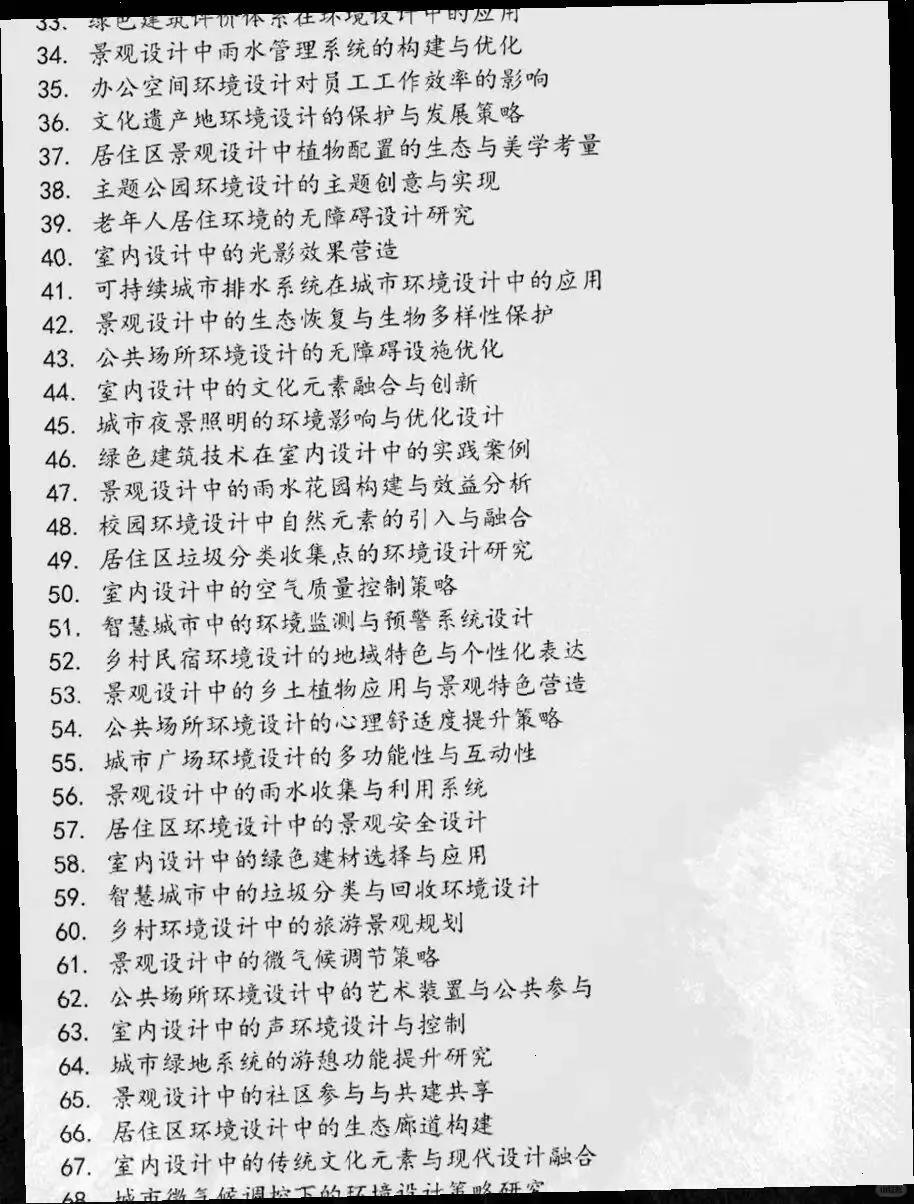 33. 绿色建筑评价体系在环境设计中的应用
34. 景观设计中雨水管理系统的构建与优化
35. 办公空间环境设计对员工工作效率的影响
36. 文化遗产地环境设计的保护与发展策略
37. 居住区景观设计中植物配置的生态与美学考量
38. 主题公园环境设计的主题创意与实现
39. 老年人居住环境的无障碍设计研究
40. 室内设计中的光影效果营造
41. 可持续城市排水系统在城市环境设计中的应用
42. 景观设计中的生态恢复与生物多样性保护
43. 公共场所环境设计的无障碍设施优化
44. 室内设计中的文化元素融合与创新
45. 城市夜景照明的环境影响与优化设计
46. 绿色建筑技术在室内设计中的实践案例
47. 景观设计中的雨水花园构建与效益分析
48. 校园环境设计中自然元素的引入与融合
49. 居住区垃圾分类收集点的环境设计研究
50. 室内设计中的空气质量控制策略
51. 智慧城市中的环境监测与预警系统设计
52. 乡村民宿环境设计的地域特色与个性化表达
53. 景观设计中的乡土植物应用与景观特色营造
54. 公共场所环境设计的心理舒适度提升策略
55. 城市广场环境设计的多功能性与互动性
56. 景观设计中的雨水收集与利用系统
57. 居住区环境设计中的景观安全设计
58. 室内设计中的绿色建材选择与应用
59. 智慧城市中的垃圾分类与回收环境设计
60. 乡村环境设计中的旅游景观规划
61. 景观设计中的微气候调节策略
62. 公共场所环境设计中的艺术装置与公共参与
63. 室内设计中的声环境设计与控制
64. 城市绿地系统的游憩功能提升研究
65. 景观设计中的社区参与与共建共享
66. 居住区环境设计中的生态廊道构建
67. 室内设计中的传统文化元素与现代设计融合
68. 城市微气候调控下的环境设计策略研究